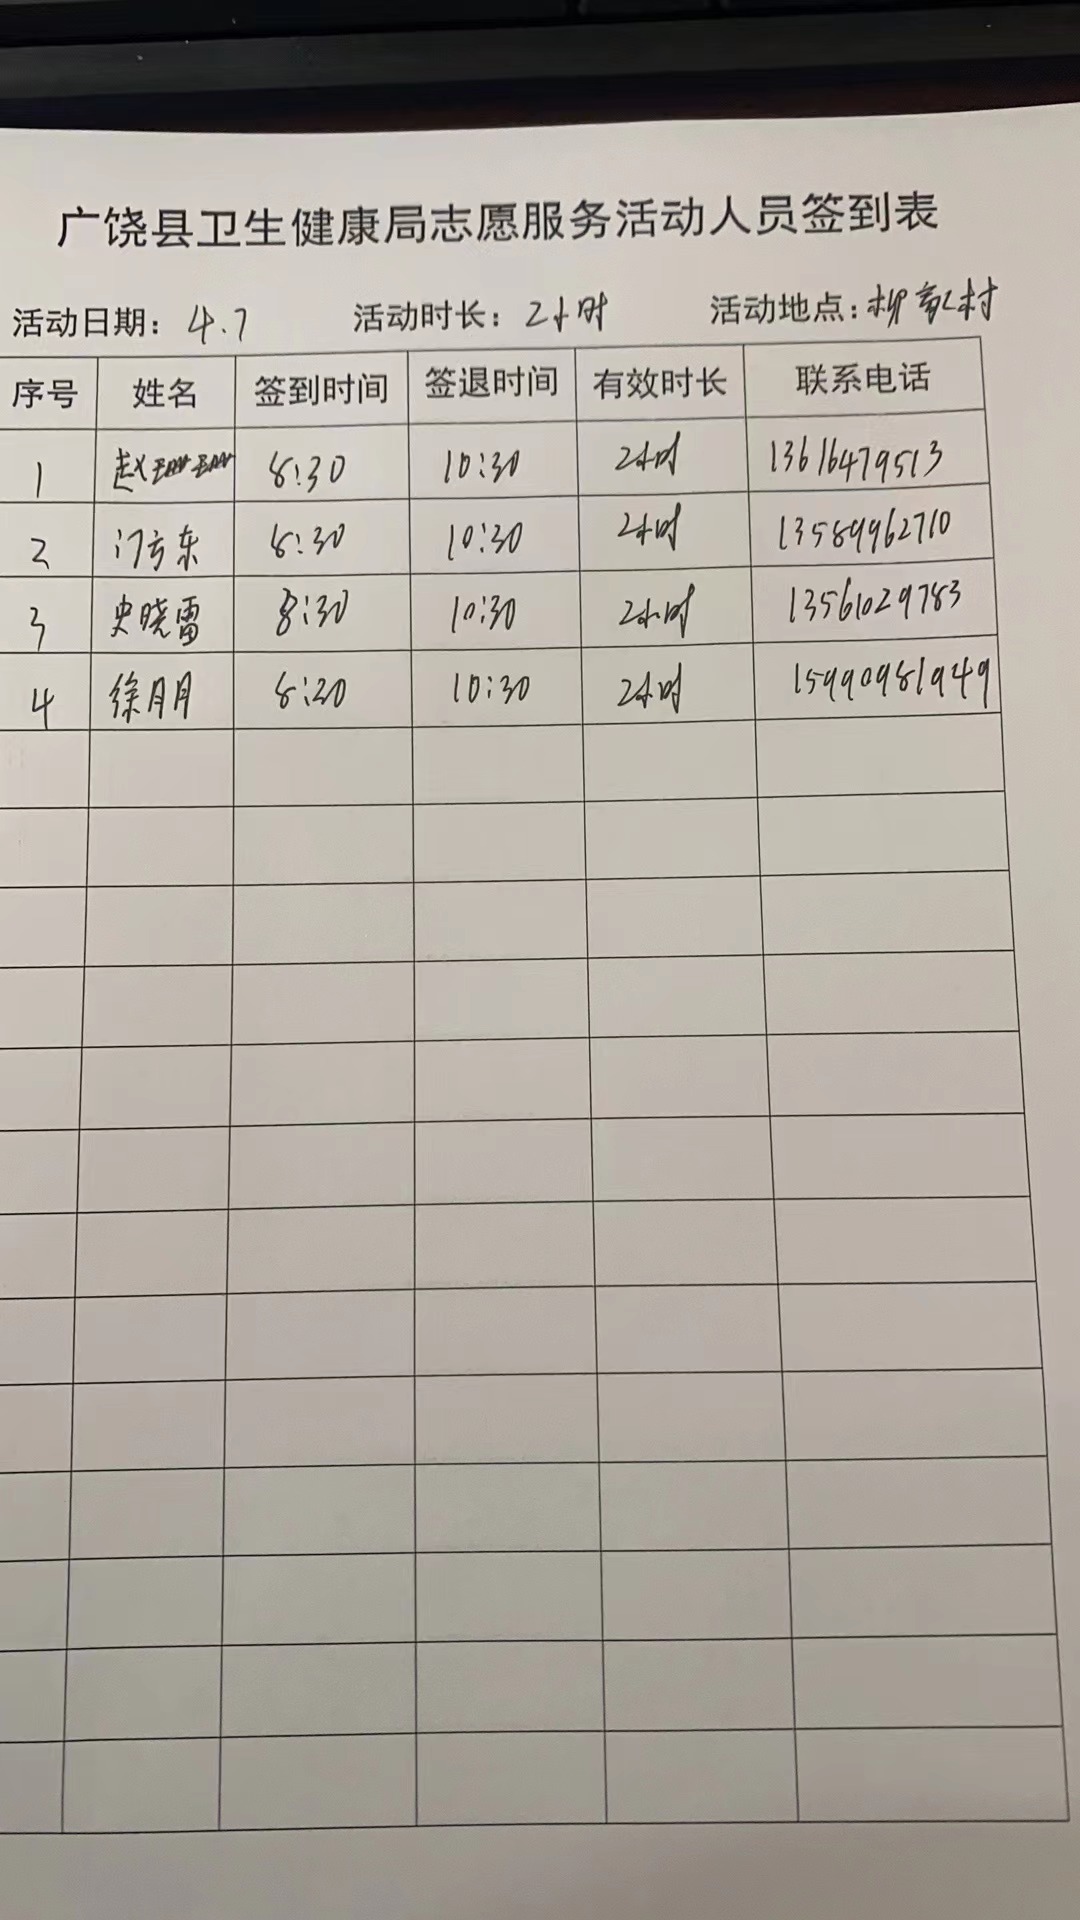 广饶县卫生健康局志愿服务活动人员签到表
活动日期：4.7 活动时长：2小时 活动地点：柳家村
序号 姓名 签到时间 签退时间 有效时长 联系电话
1 赵珊珊 8:30 10:30 2小时 13616479513
2 门方东 8:30 10:30 2小时 13589962710
3 史晓雷 8:30 10:30 2小时 13561029783
4 徐月月 8:30 10:30 2小时 15990981949